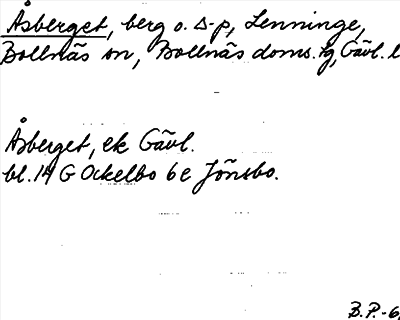 Åsberget, berg o. Δ-p, Lenninge,
Bollnäs sn, Bollnäs doms.hg, Gävl. l
Åsberget, ek Gävl.
bl. 14 G Ockelbo 6e Jönsbo.
B.P.-6